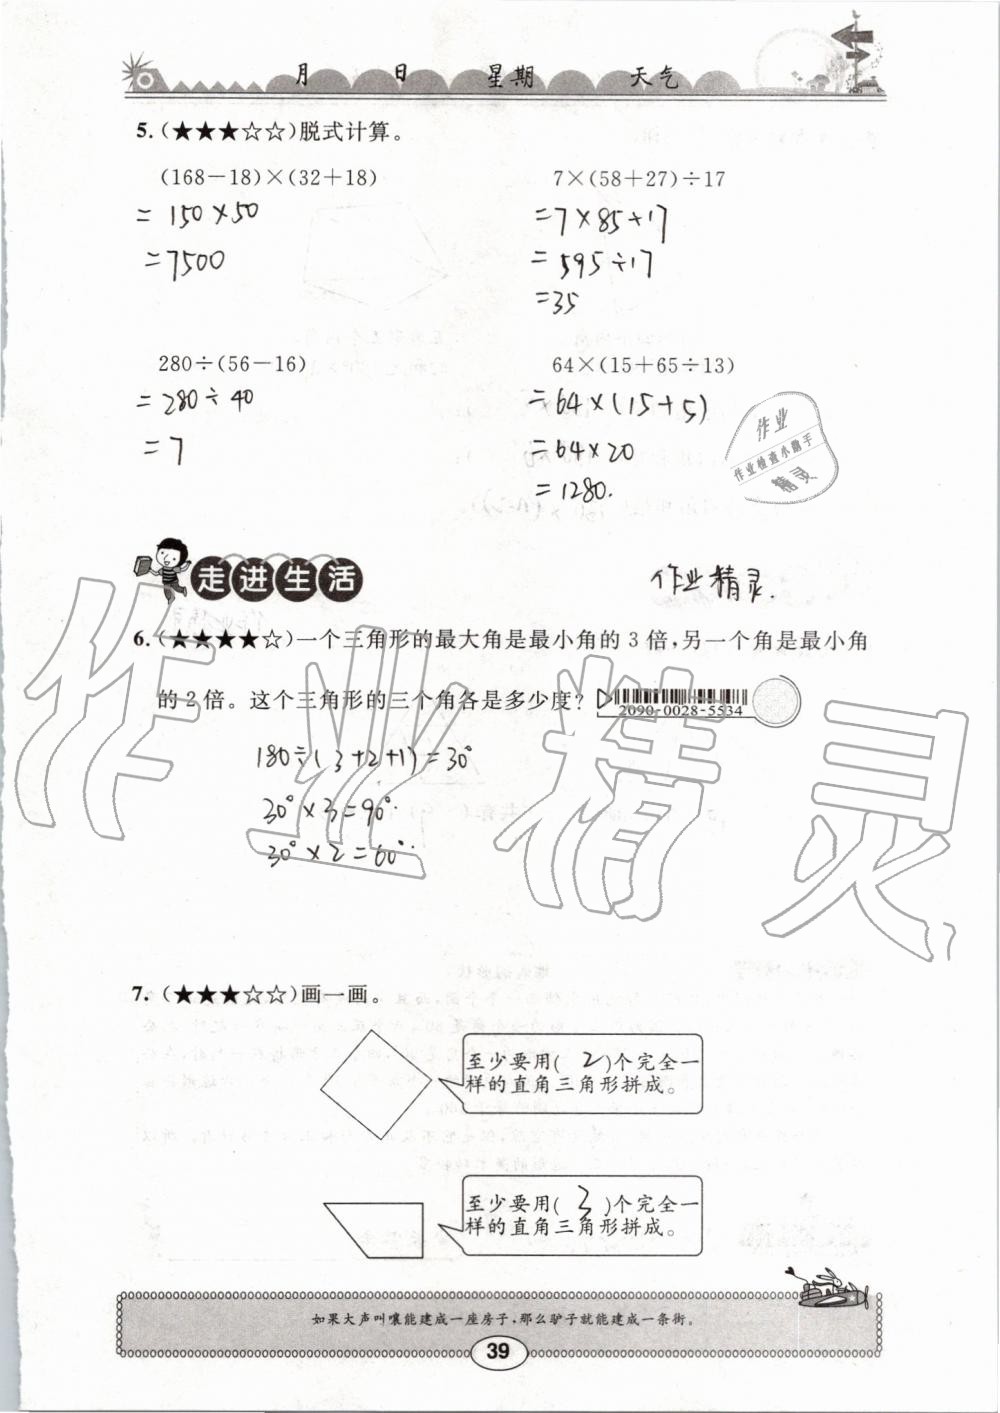 月 日 星期 天气
5.(★★★☆☆)脱式计算。
(168－18)×(32＋18)
=150×50
=7500
7×(58＋27)÷17
=7×85÷17
=595÷17
=35
280÷(56－16)
=280÷40
=7
64×(15＋65÷13)
=64×(15+5)
=64×20
=1280.
作业
作业检查小助手
精灵
走进生活
作业精灵.
6.(★★★★☆)一个三角形的最大角是最小角的 3 倍,另一个角是最小角
的 2 倍。这个三角形的三个角各是多少度?
2090-0028-5534
180÷(3+2+1)=30°
30°×3=90°.
30°×2=60°.
作业精灵
7.(★★★☆☆)画一画。
至少要用( 2 )个完全一
样的直角三角形拼成。
至少要用( 3 )个完全一
样的直角三角形拼成。
如果大声叫嚷能建成一座房子,那么驴子就能建成一条街。
39